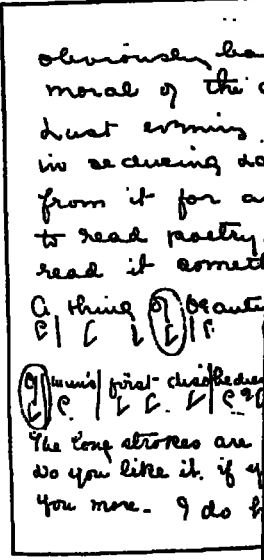 obviously ba
moral of the
Last evening
in seducing
from it for a
to read poetry
read it somet
A thing of beaut
man's first diso
The long strokes are
Do you like it. if y
you more. I do h